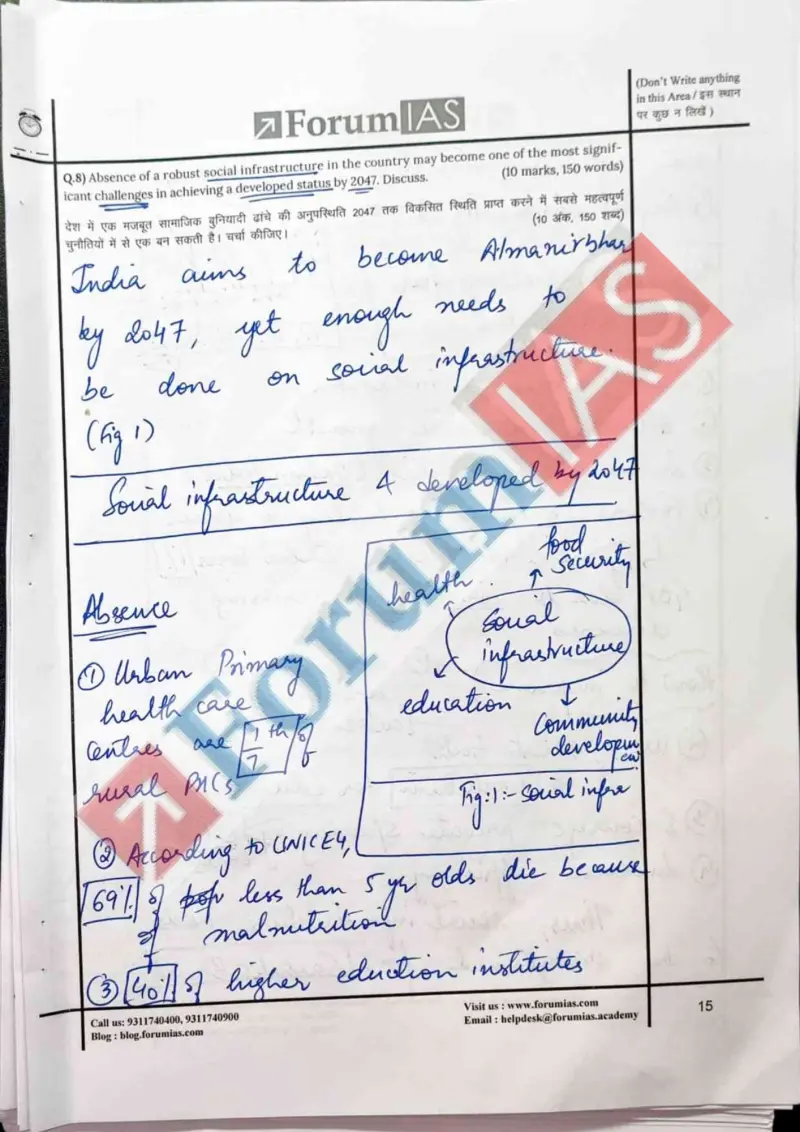 (Don't Write anything
in this Area / इस स्थान
पर कुछ न लिखें )
ForumIAS
Q.8) Absence of a robust social infrastructure in the country may become one of the most signif-
icant challenges in achieving a developed status by 2047. Discuss. (10 marks, 150 words)
देश में एक मजबूत सामाजिक बुनियादी ढांचे की अनुपस्थिति 2047 तक विकसित स्थिति प्राप्त करने में सबसे महत्वपूर्ण
चुनौतियों में से एक बन सकती है। चर्चा कीजिए। (10 अंक, 150 शब्द)
India aims to become Atmanirbhar
by 2047, yet enough needs to
be done on social infrastructure.
(Fig 1)
Social infrastructure & developed by 2047
Absence
① Urban Primary
health care
centres are 1/7 th of
rural PHCs
food
security
health
Social
infrastructure
education
Community
developmen
Fig:1:- Social infra
② According to UNICEF,
69% of less than 5 yr olds die because
of malnutrition
③ 40% of higher eduction institutes
ForumIAS
Call us: 9311740400, 9311740900
Blog : blog.forumias.com
Visit us : www.forumias.com
Email : helpdesk@forumias.academy
15